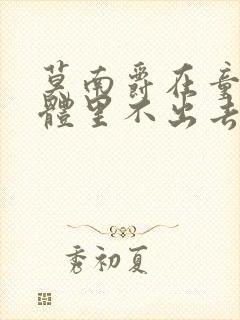 莫南爵在童
體里不出去
秀初夏